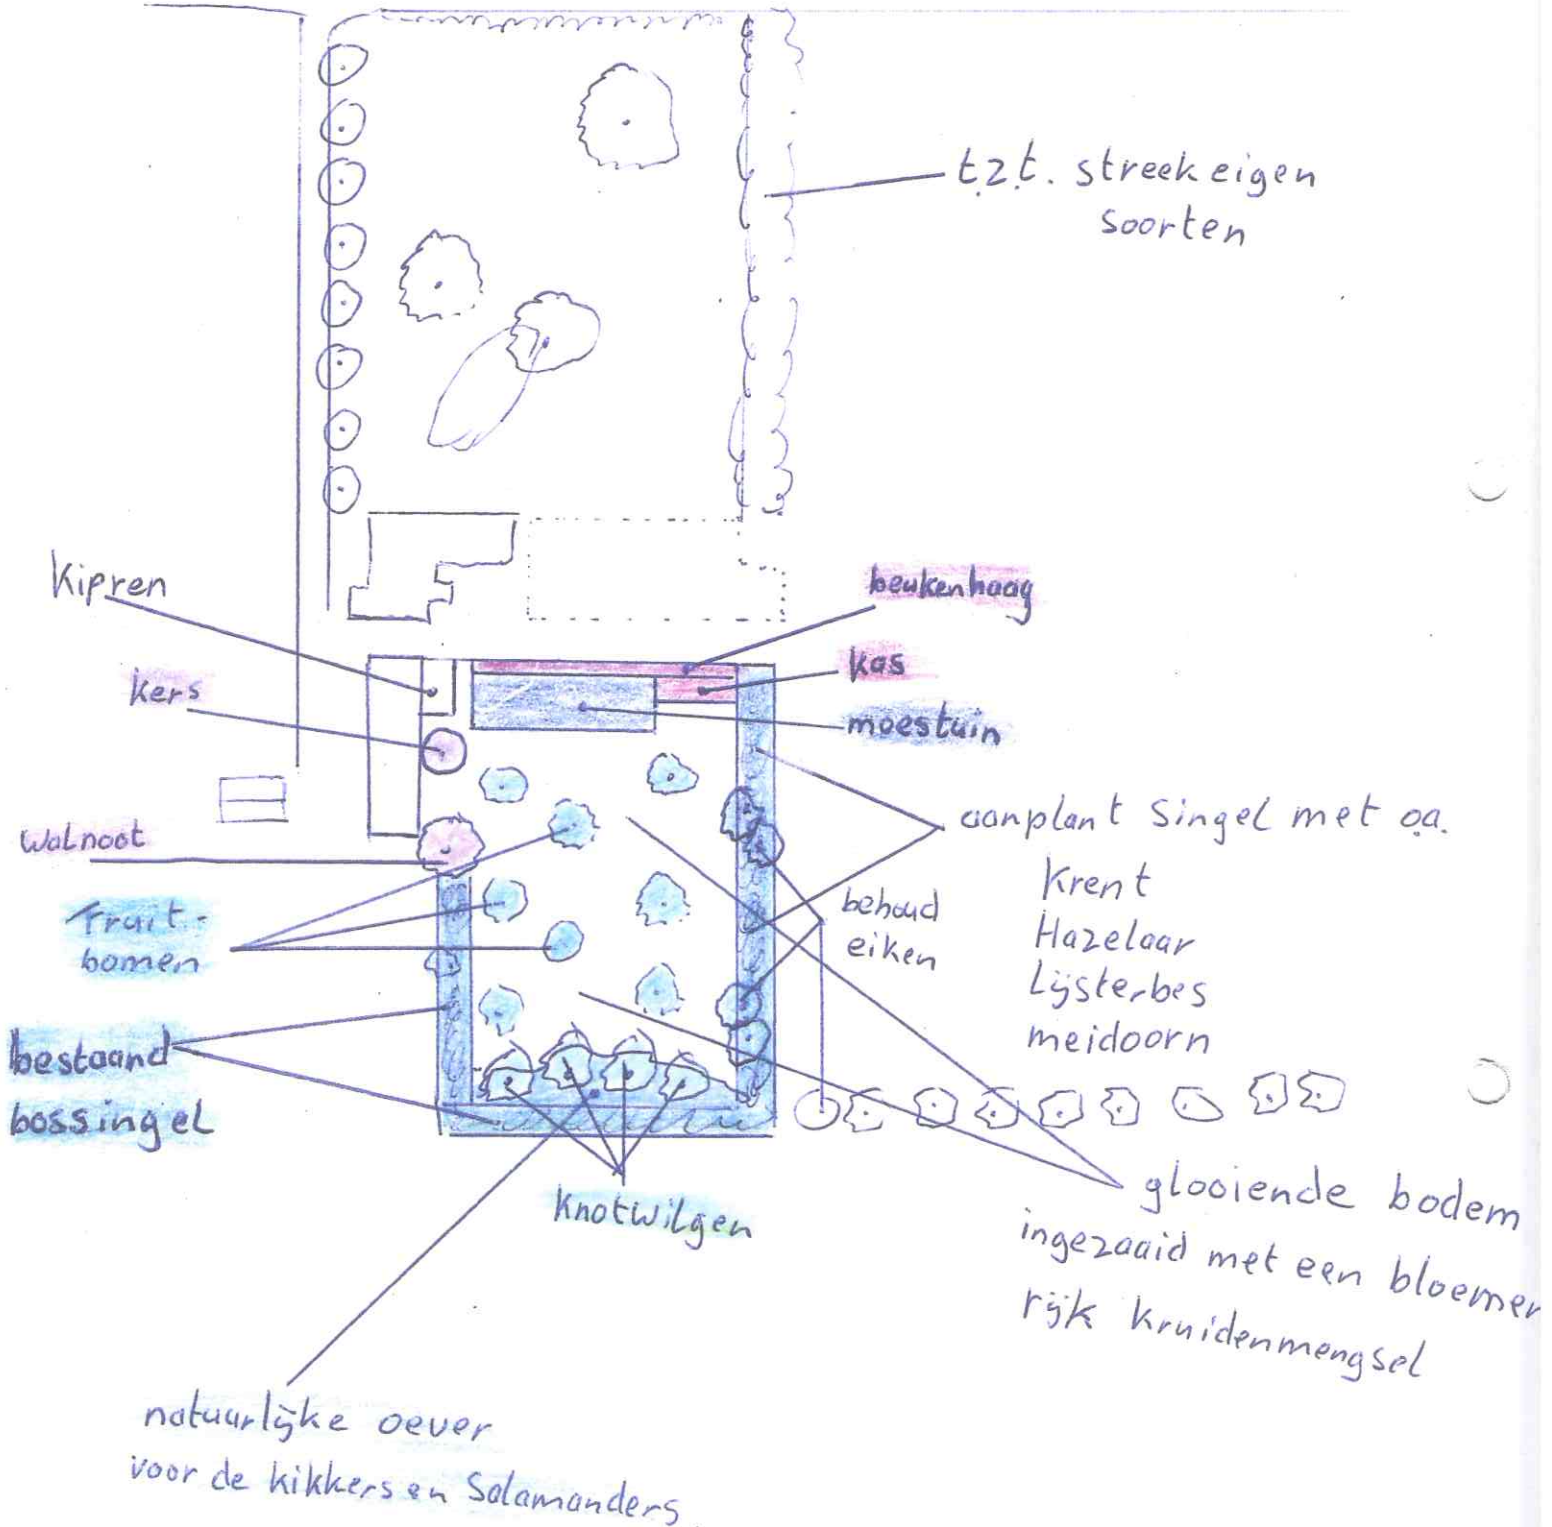 t.z.t. streekeigen
soorten
Kipren
beukenhaag
kers
kas
moestuin
walnoot
aanplant Singel met o.a.
Krent
Hazelaar
Lijsterbes
meidoorn
behoud
eiken
Fruit-
bomen
bestaand
bossingel
Knotwilgen
glooiende bodem
ingezaaid met een bloemen
rijk kruidenmengsel
natuurlijke oever
voor de kikkers en Salamanders